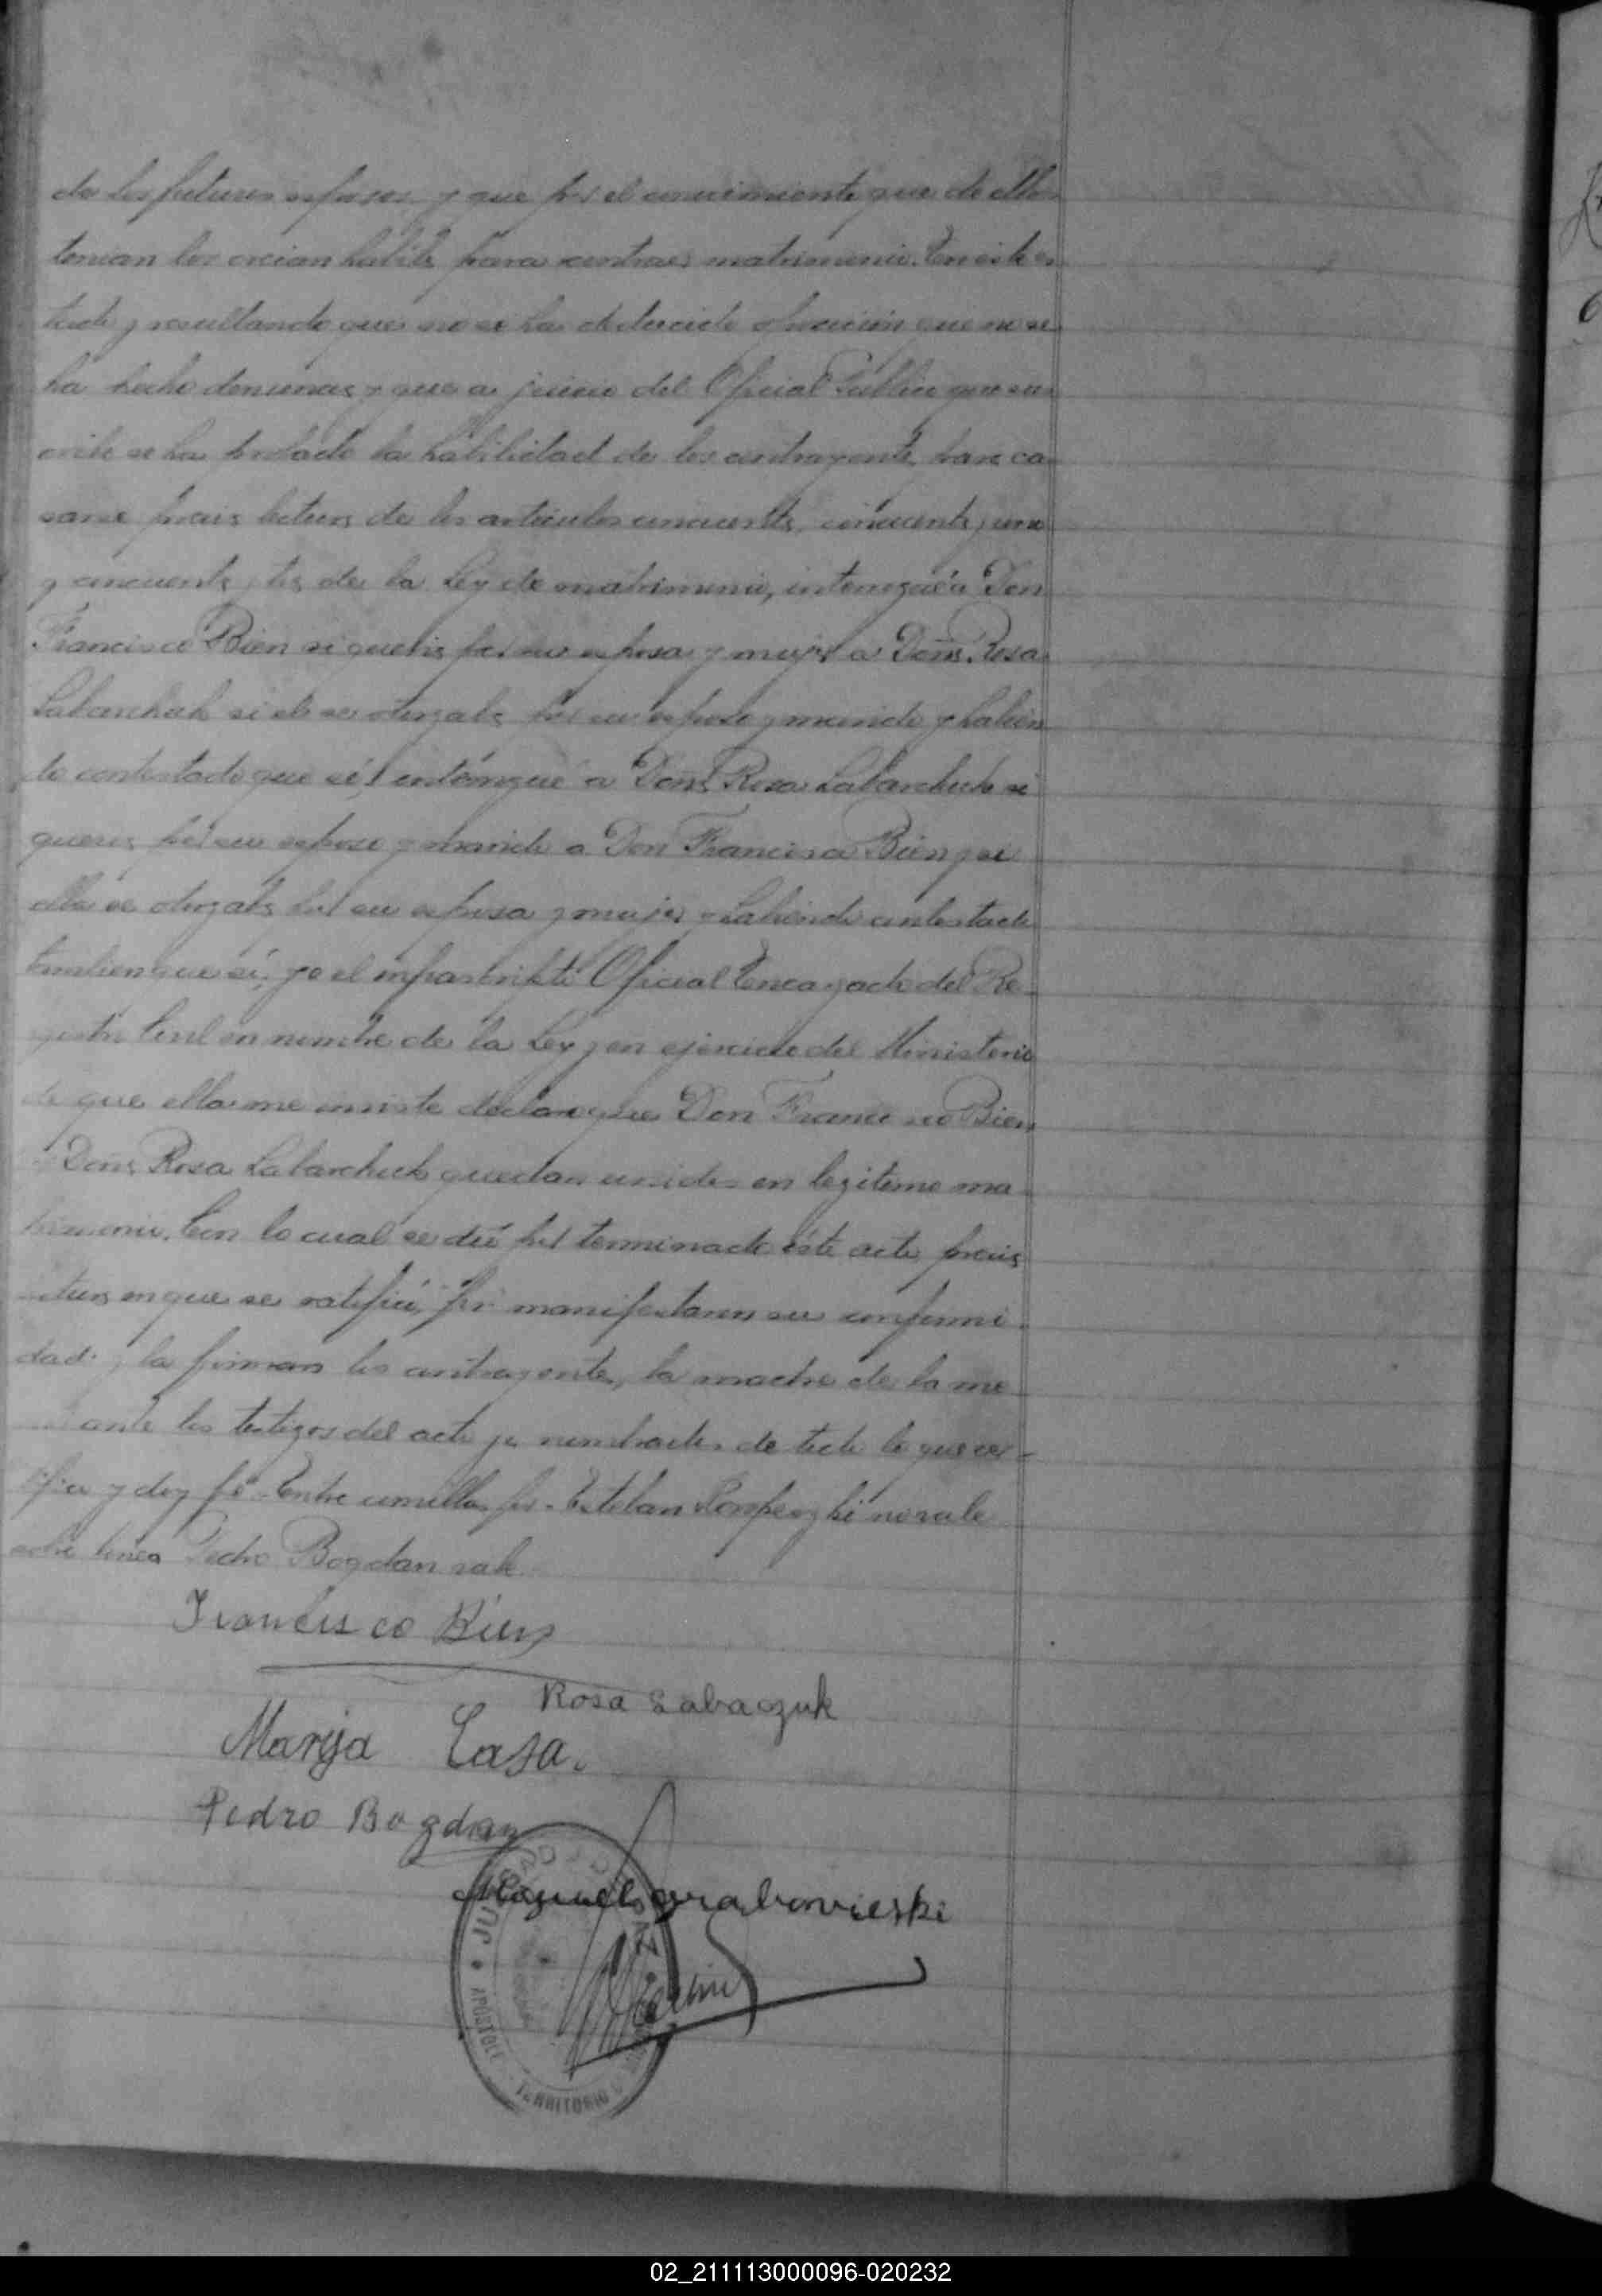 de los futuros esposos, y que por el conocimiento que de ellos
tenian los creian habiles para contraer matrimonio. En este es
tado y resultando que no se ha deducido oposicion que no se
ha hecho denuncia y que a juicio del Oficial Publico que sus
cribe se ha probado la habilidad de los contrayentes para ca
sarse previa lectura de los articulos cincuenta, cincuenta y uno
y cincuenta y tres de la Ley de matrimonio, interrogué a Don
Francisco Bien si queria por su esposa y mujer a Doña Rosa
Labarchuk si el se otorgaba por su esposo y marido y habien
do contestado que sí, interrogué a Doña Rosa Labarchuk si
queria por su esposo y marido a Don Francisco Bien y si
ella se otorgaba por su esposa y mujer y habiendo contestado
tambien que sí, yo el infrascripto Oficial Encargado del Re
gistro Civil en nombre de la Ley y en ejercicio del Ministerio
de que ella me inviste declaro que Don Francisco Bien
Doña Rosa Labarchuk quedan unidos en legitimo ma
trimonio. Con lo cual se dió por terminado este acto previa
lectura en que se ratificó, por manifestaron su conformi
dad y la firman los contrayentes, la madre de la me
ante los testigos del acto ya nombrados de todo lo que cer
tifica y doy fé. Entre comillas por - Esteban no vale
sobre linea Pedro Bogdan vale
Francisco Bien
Rosa Labaczuk
Marija Casa.
Pedro Bogdan
Miguel Grabovieski
JUZGADO DE PAZ
APOSTOLES
TERRITORIO
02_211113000096-020232